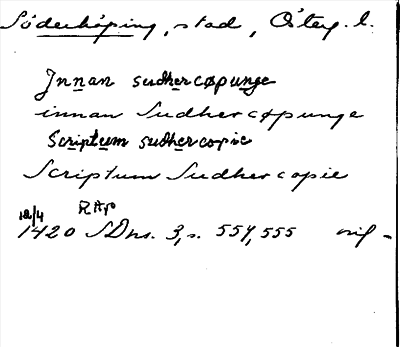 Söderköping, stad, Östeg. l.
Jnnan sudhercøpunge
innan Sudhercøpunge
Scriptum sudhercopie
Scriptum Sudhercopie
12/4 RAp
1420 SDns. 3, s. 554, 555 orig -